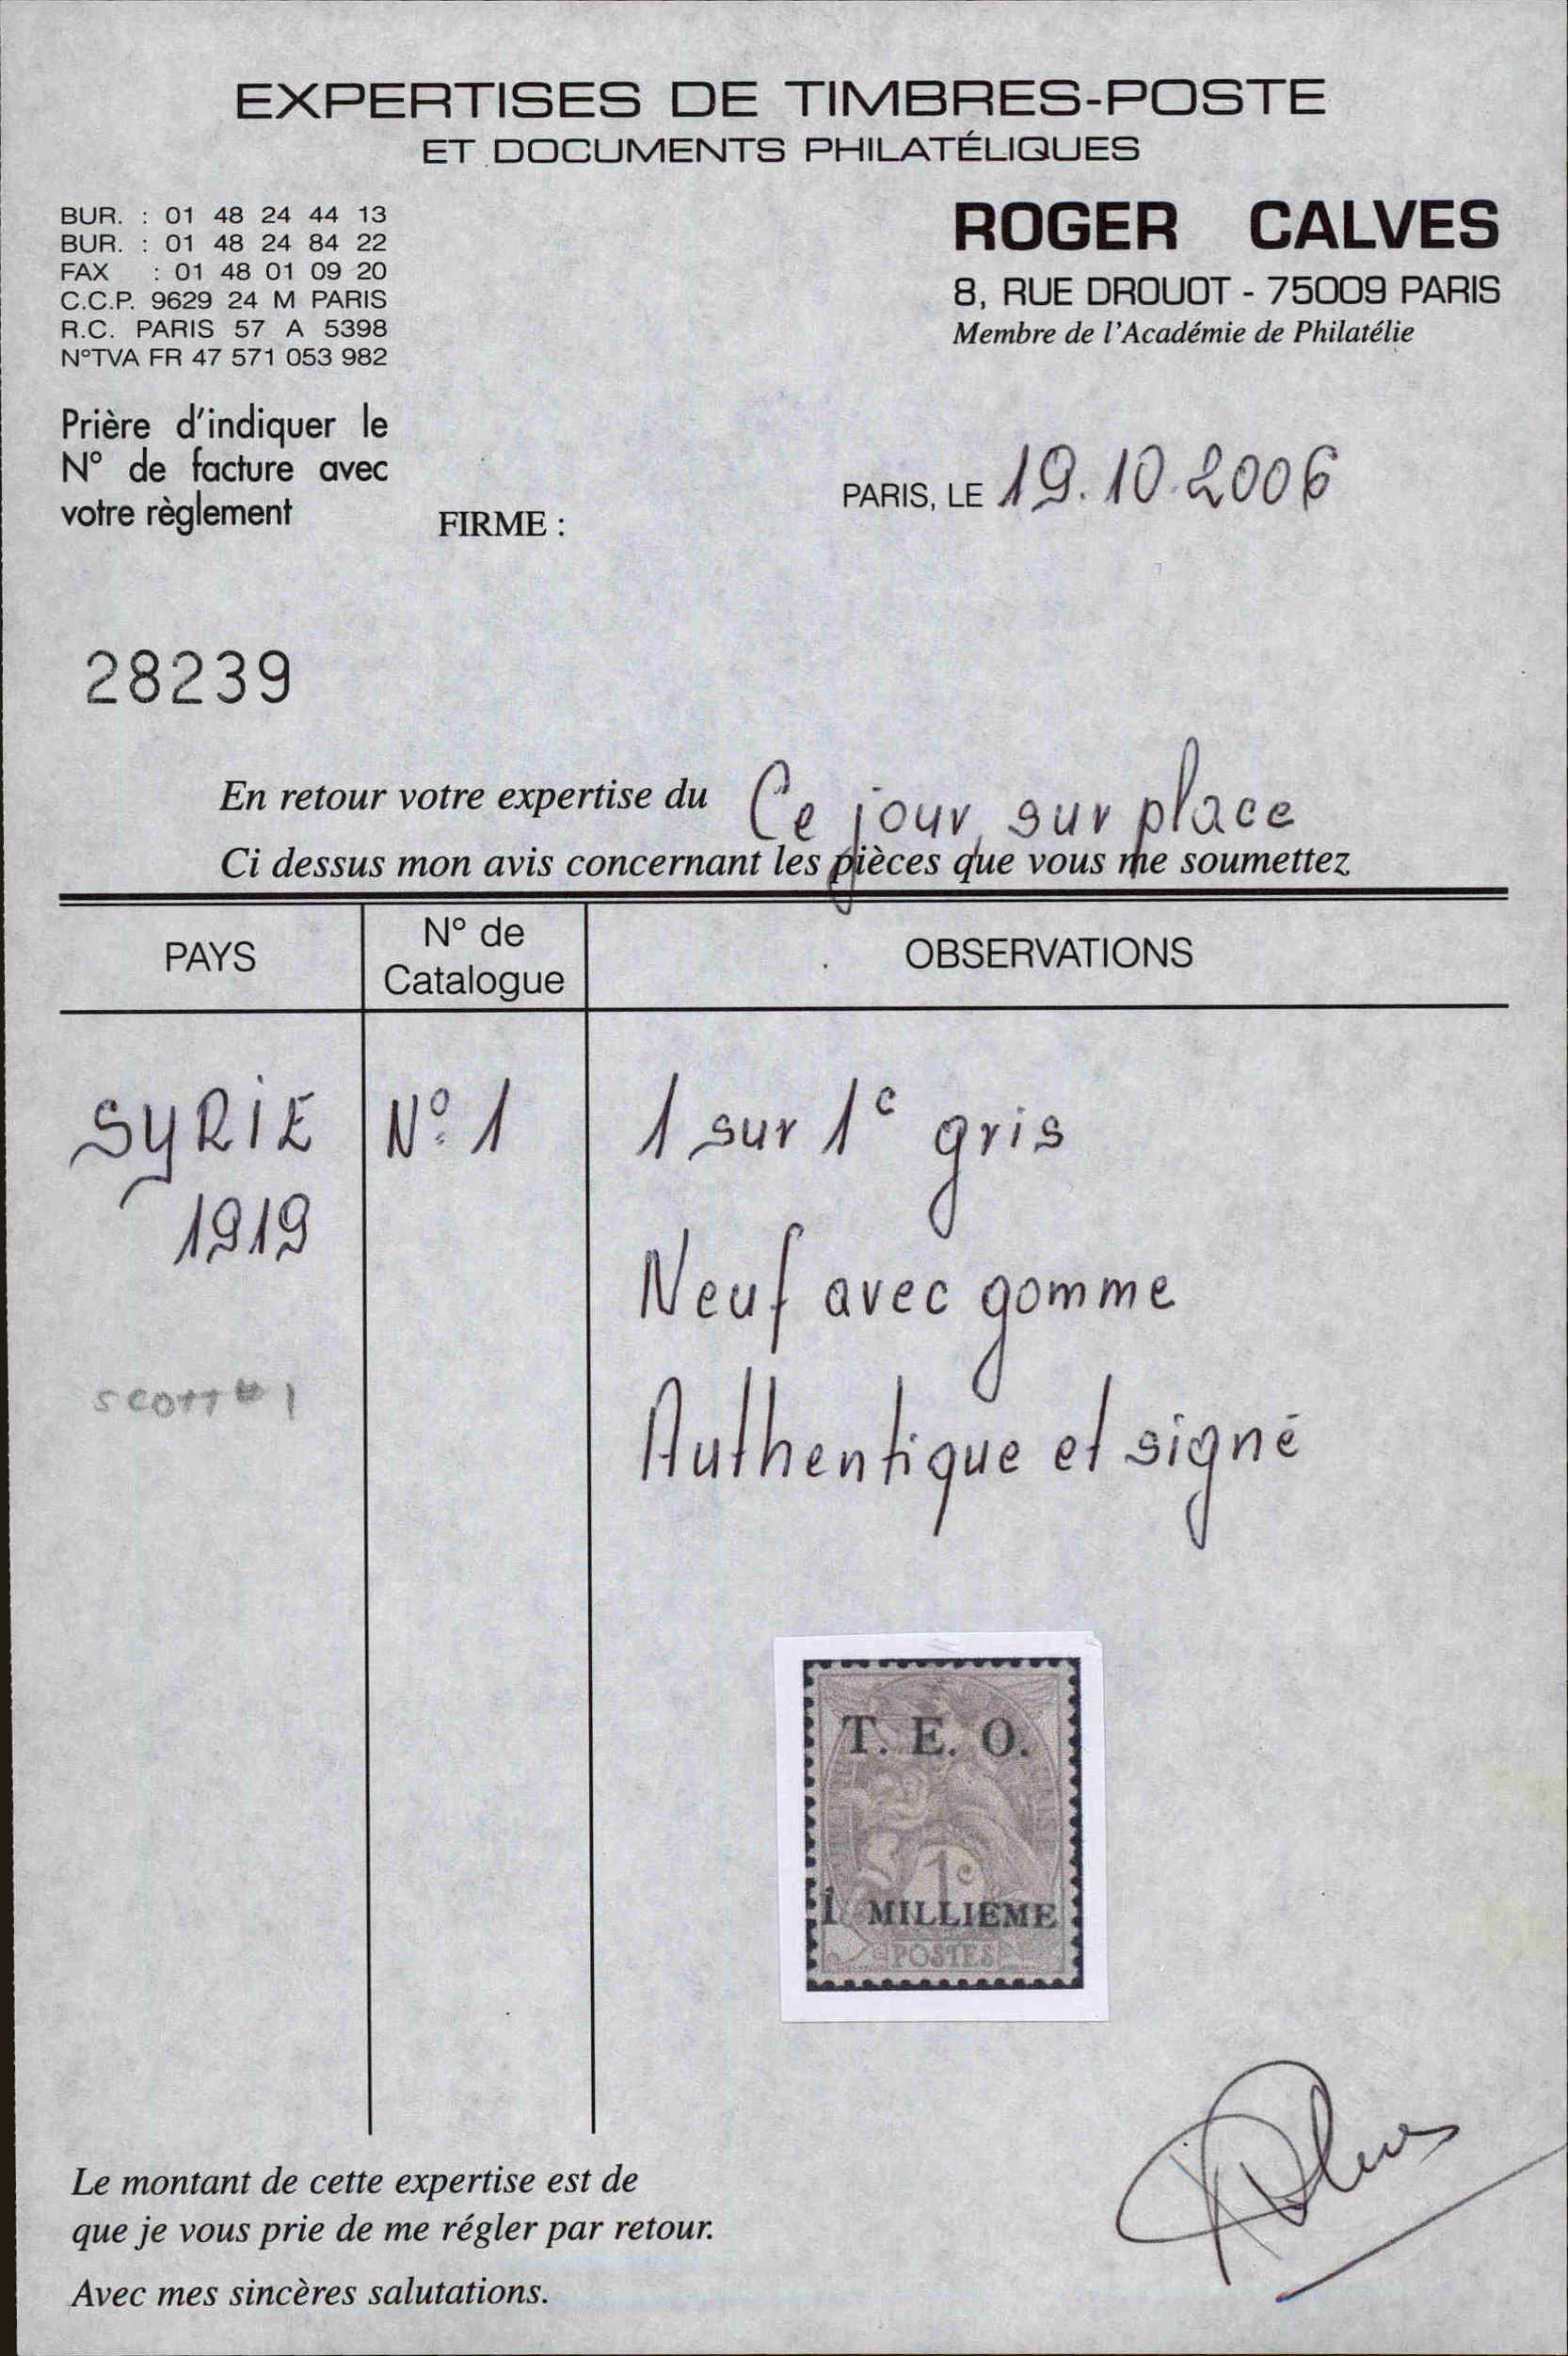 EXPERTISES DE TIMBRES-POSTE
ET DOCUMENTS PHILATÉLIQUES
BUR. : 01 48 24 44 13
BUR. : 01 48 24 84 22
FAX : 01 48 01 09 20
C.C.P. 9629 24 M PARIS
R.C. PARIS 57 A 5398
N°TVA FR 47 571 053 982
ROGER CALVES
8, RUE DROUOT - 75009 PARIS
Membre de l'Académie de Philatélie
Prière d'indiquer le
N° de facture avec
votre règlement
FIRME :
PARIS, LE 19.10.2006
28239
En retour votre expertise du Ce jour, sur place
Ci dessus mon avis concernant les pièces que vous me soumettez
PAYS
N° de
Catalogue
OBSERVATIONS
SYRIE
1919
N° 1
1 sur 1c gris
Neuf avec gomme
Authentique et signé
SCOTT # 1
T. E. O.
1c
1 MILLIEME
POSTES
Le montant de cette expertise est de
que je vous prie de me régler par retour.
Avec mes sincères salutations.